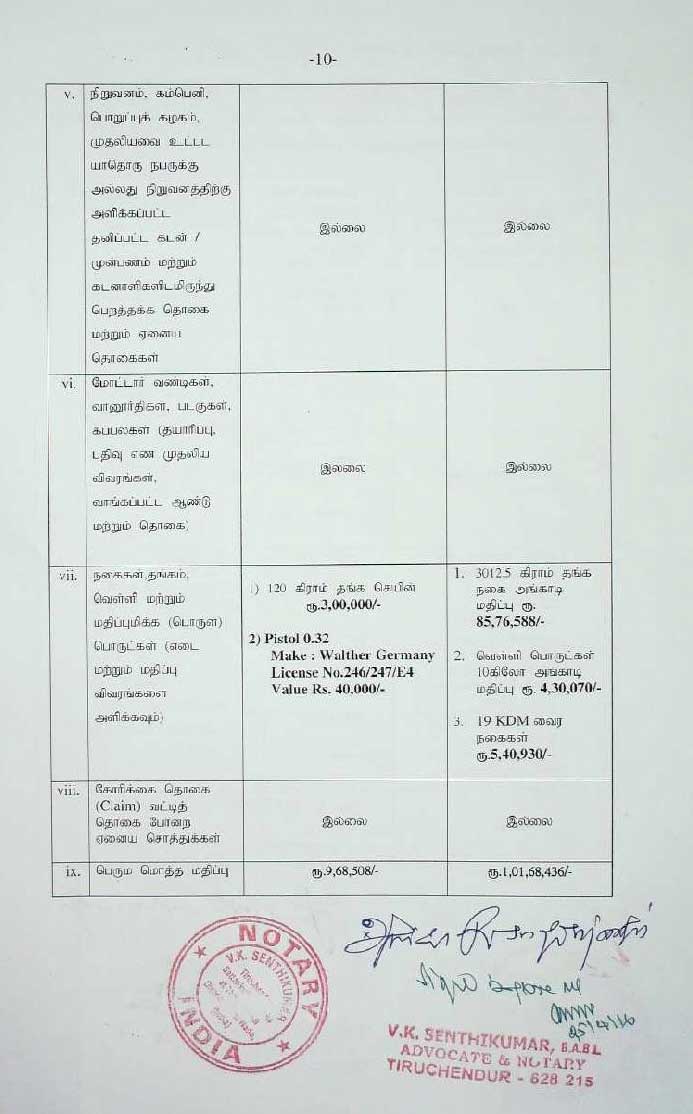 -10-
v.
நிறுவனம், கம்பெனி,
பொறுப்புக் கழகம்,
முதலியவை உட்பட
யாதொரு நபருக்கு
அல்லது நிறுவனத்திற்கு
அளிக்கப்பட்ட
தனிப்பட்ட கடன் /
முன்பணம் மற்றும்
கடனாளிகளிடமிருந்து
பெறத்தக்க தொகை
மற்றும் ஏனைய
தொகைகள்
இல்லை
இல்லை
vi.
மோட்டார் வண்டிகள்,
வானூர்திகள், படகுகள்,
கப்பல்கள் (தயாரிப்பு,
பதிவு எண் முதலிய
விவரங்கள்,
வாங்கப்பட்ட ஆண்டு
மற்றும் தொகை)
இல்லை
இல்லை
vii.
நகைகள்,தங்கம்,
வெள்ளி மற்றும்
மதிப்புமிக்க (பொருள்)
பொருட்கள் (எடை
மற்றும் மதிப்பு
விவரங்களை
அளிக்கவும்)
1) 120 கிராம் தங்க செயின்
ரூ.3,00,000/-
2) Pistol 0.32
Make : Walther Germany
License No.246/247/E4
Value Rs. 40,000/-
1. 3012.5 கிராம் தங்க
நகை அங்காடி
மதிப்பு ரூ.
85,76,588/-
2. வெள்ளி பொருட்கள்
10கிலோ அங்காடி
மதிப்பு ரூ. 4,30,070/-
3. 19 KDM வைர
நகைகள்
ரூ.5,40,930/-
viii.
கோரிக்கை தொகை
(Claim) வட்டித்
தொகை போன்ற
ஏனைய சொத்துக்கள்
இல்லை
இல்லை
ix.
பெரும மொத்த மதிப்பு
ரூ.9,68,508/-
ரூ.1,01,68,436/-
NOTARY
V.K. SENTHIKUMAR
INDIA
V.K. SENTHIKUMAR, B.A.BL
ADVOCATE & NOTARY
TIRUCHENDUR - 628 215